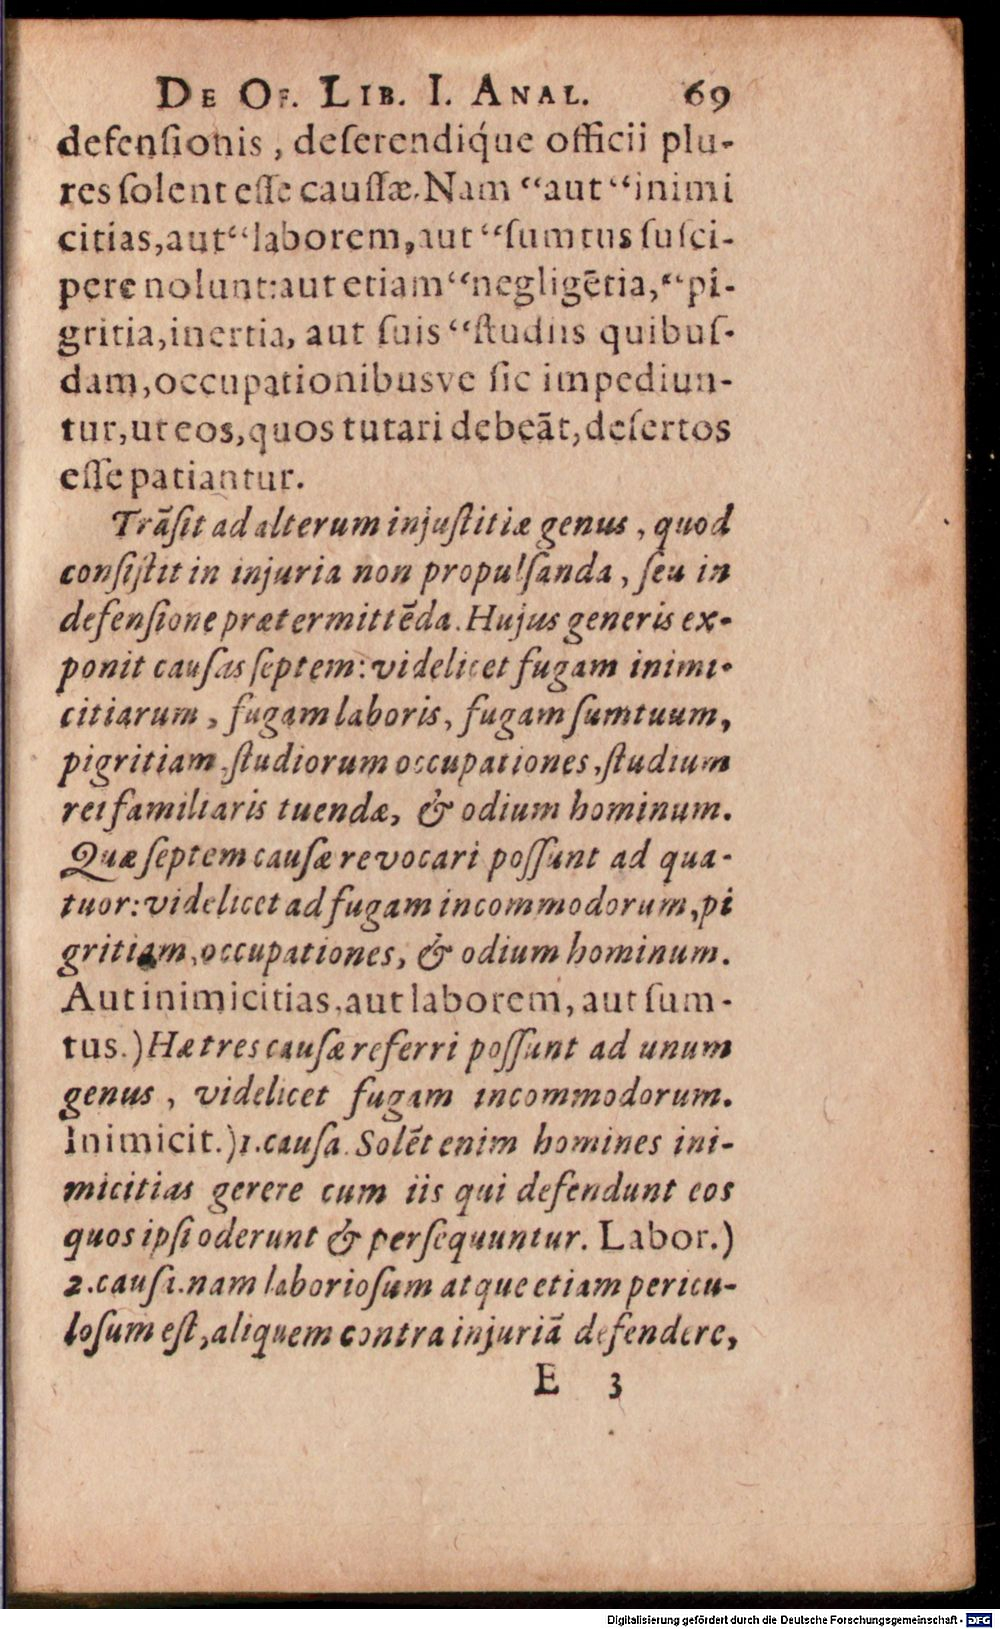 DE OF. LIB. I. ANAL. 69
defenſionis, deſerendiq́ue officii plu-
res ſolent eſſe cauſſæ. Nam “aut “inimi
citias, aut “laborem, aut “ſumtus ſuſci-
pere nolunt: aut etiam “negligētia, “pi-
gritia, inertia, aut ſuis “ſtudiis quibuſ-
dam, occupationibusve ſic impediun-
tur, ut eos, quos tutari debeāt, deſertos
eſſe patiantur.
Trāſit ad alterum injuſtitiæ genus, quod
conſiſtit in injuria non propulſanda, ſeu in
defenſione prætermittēda. Hujus generis ex-
ponit cauſas ſeptem: videlicet fugam inimi-
citiarum, fugam laboris, fugam ſumtuum,
pigritiam, ſtudiorum occupationes, ſtudium
rei familiaris tuendæ, & odium hominum.
Quæ ſeptem cauſæ revocari poſſunt ad qua-
tuor: videlicet ad fugam incommodorum, pi
gritiam, occupationes, & odium hominum.
Aut inimicitias, aut laborem, aut ſum-
tus.) Hæ tres cauſæ referri poſſunt ad unum
genus, videlicet fugam incommodorum.
Inimicit.) 1. cauſa. Solēt enim homines ini-
micitias gerere cum iis qui defendunt eos
quos ipſi oderunt & perſequuntur. Labor.)
2. cauſa. nam laborioſum atque etiam pericu-
loſum eſt, aliquem contra injuriā defendere,
E 3
Digitalisierung gefördert durch die Deutsche Forschungsgemeinschaft - DFG